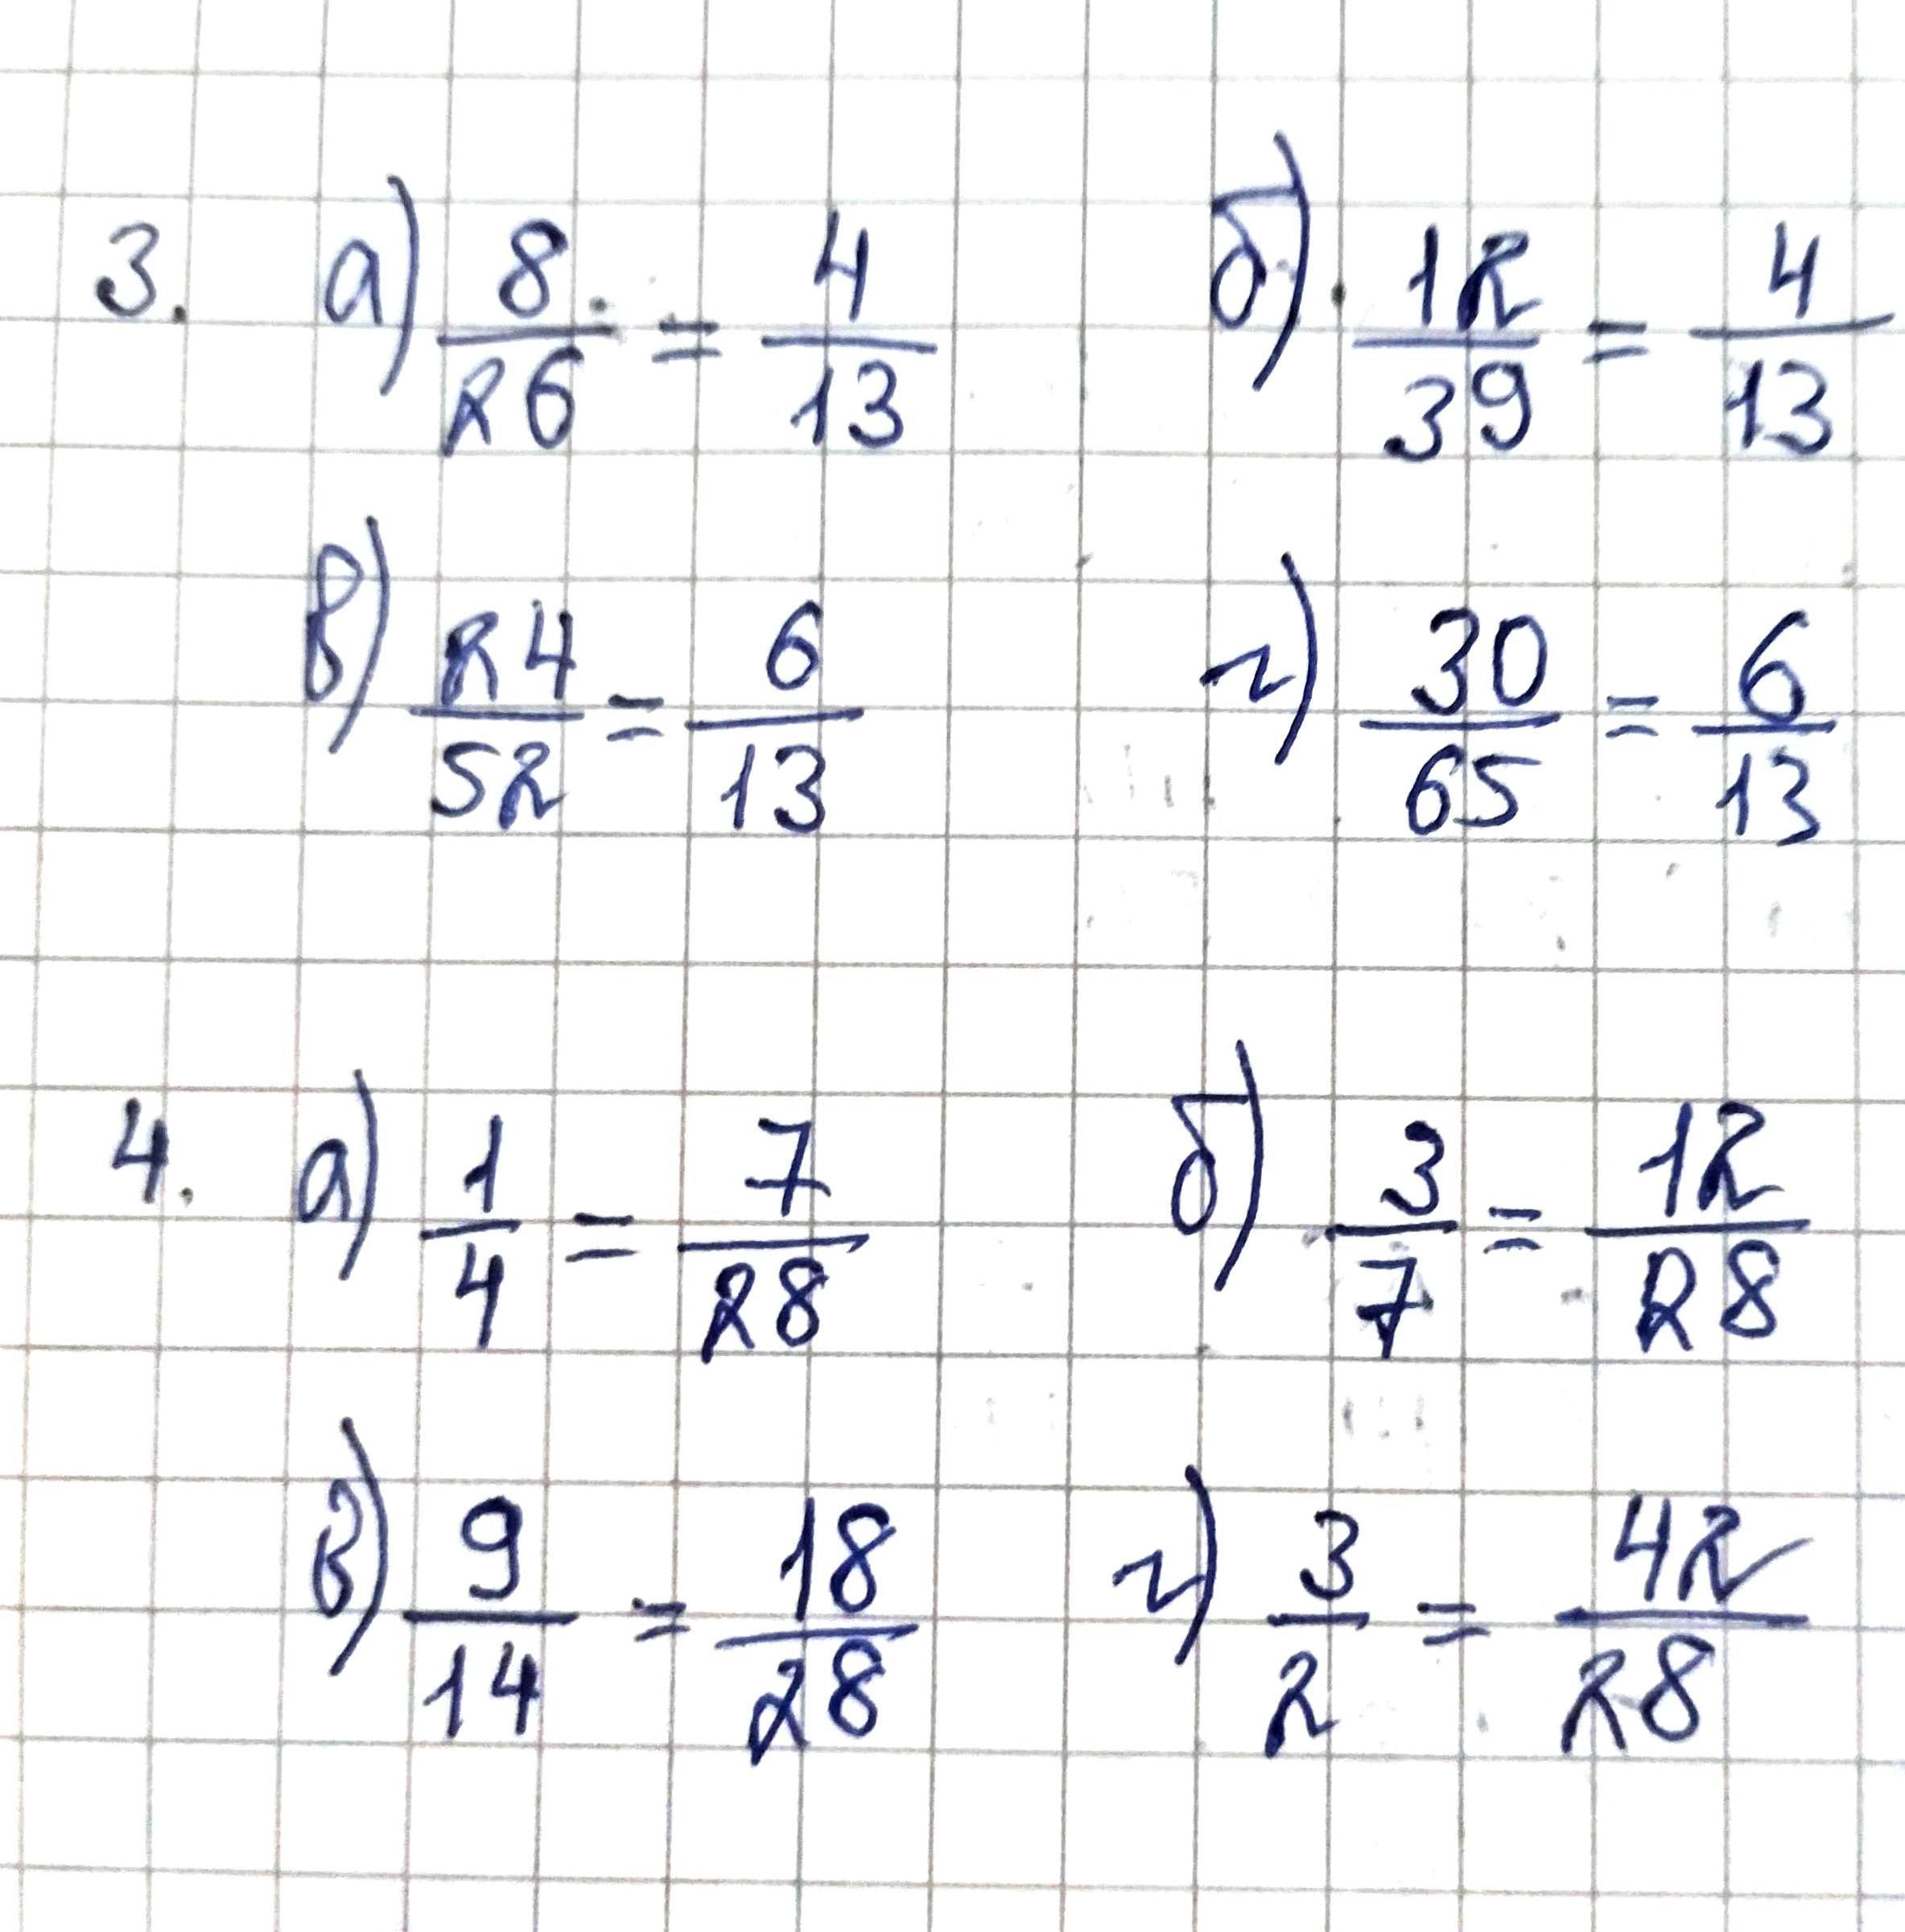 3. а) 8/26 = 4/13 б) 12/39 = 4/13
в) 24/52 = 6/13 г) 30/65 = 6/13
4. а) 1/4 = 7/28 б) 3/7 = 12/28
в) 9/14 = 18/28 г) 3/2 = 42/28